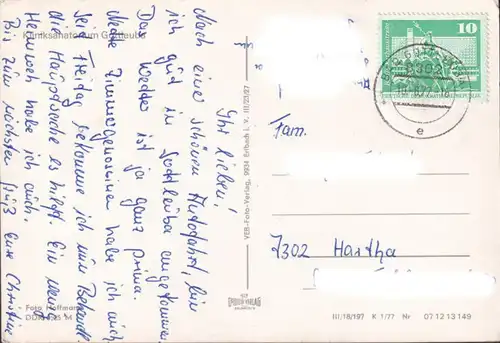 Ihr lieben!
Nach eine schönen Autofahrt, bin
ich gut in Gottleuba angekommen.
Das Wetter ist ja ganz prima.
Nette Zimmergenossinen habe ich auch
Seit Freitag bekomme ich nun Behandl.
die Hauptsache es hilft. Ein wenig
Heimweh habe ich auch.
Bis zum nächsten Gruß eure Christine
Kliniksanatorium Gottleuba
Foto Hoffmann
VEB-Foto-Verlag, 9934 Erlbach i. V. III/23/27
10
8302
e
Fam.
7302 Hartha
III/18/197 K 1/77 Nr 07 12 13 149